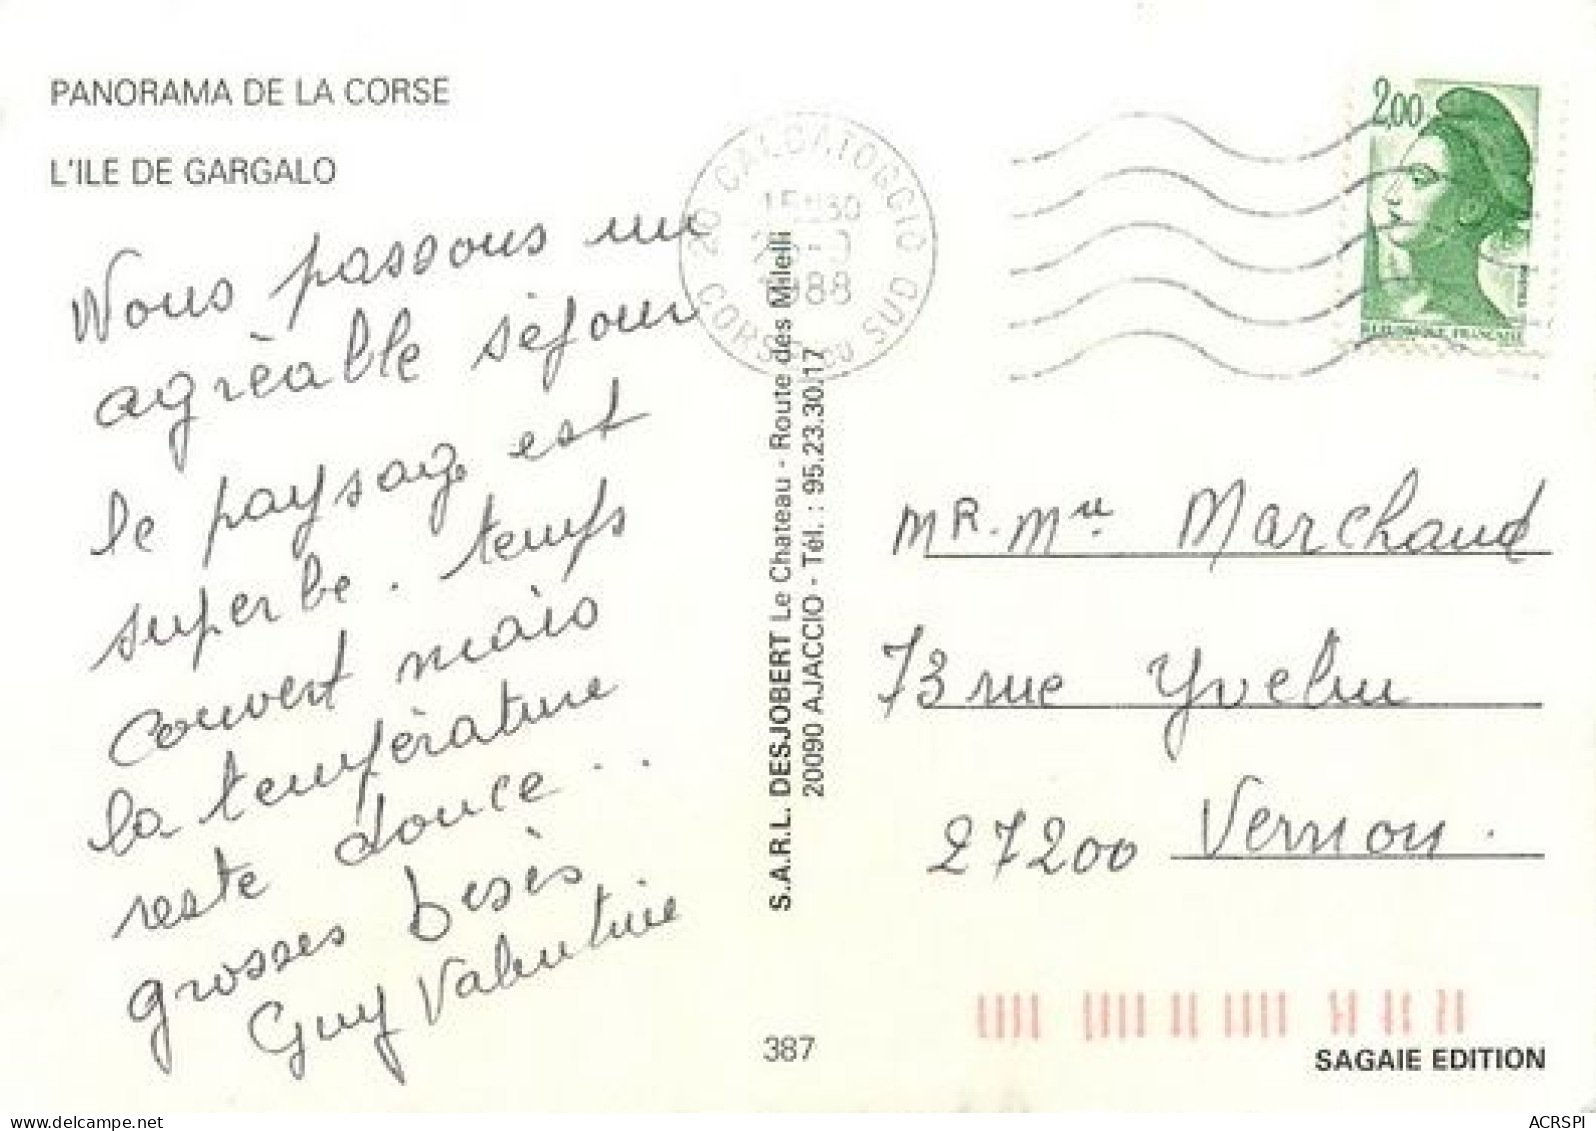 PANORAMA DE LA CORSE
L'ILE DE GARGALO
Nous passons un
agrèable séjour
le paysage est
superbe. temps
couvert mais
la température
reste douce...
grosses besès
Guy Valentine
20 CALCATOGGIO
15H30
1988
CORSE DU SUD
2,00
REPUBLIQUE FRANÇAISE
S.A.R.L. DESJOBERT Le Chateau - Route des Milelli
20090 AJACCIO - Tél. : 95.23.30.17
MR. Mme Marchand
73 rue Yvelin
27200 Vernon.
387
SAGAIE EDITION
delcampe.net
ACRSPI